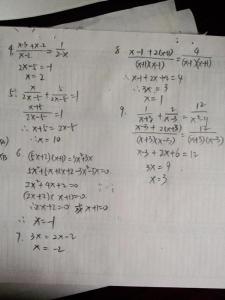 4. (x-3+x-2)/(x-2) = 1/(2-x)
2x-5=-1
x=2
5. x/(2x-5) + 5/(2x-5) = 1
(x+5)/(2x-5) = 1
∴x+5=2x-5
∴x=10
6. (5x+2)(x+1)=3x²+3x
5x²+5x+2x+2-3x²-3x=0
2x²+4x+2=0
(2x+2)(x+1)=0
∴2x+2=0 或 x+1=0
∴x=-1
7. 3x=2x-2
x=-2
8. (x-1+2(x+1))/((x+1)(x-1)) = 4/((x+1)(x-1))
∴x-1+2x+2=4
∴3x=3
x=1
9. 1/(x+3) + 2/(x-3) = 12/(x²-9)
(x-3+2(x+3))/((x+3)(x-3)) = 12/((x+3)(x-3))
x-3+2x+6=12
3x=9
x=3